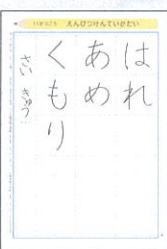 えんぴつけんていかだい
はれ
あめ
くもり
さい きゅう